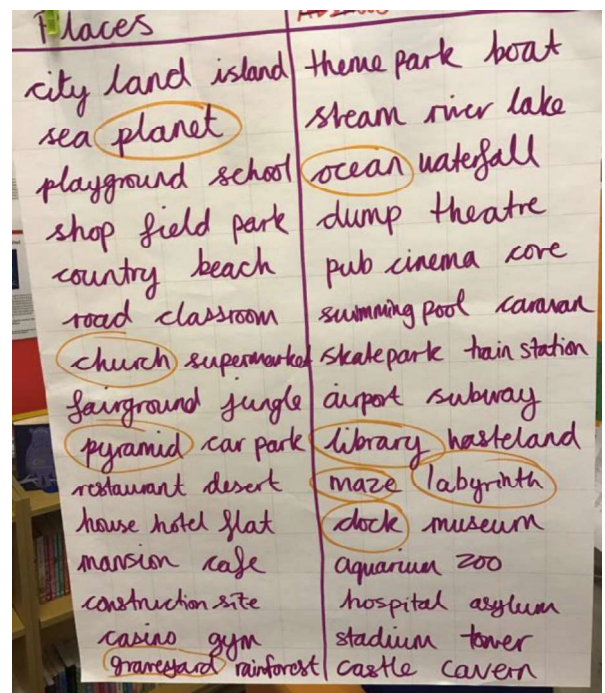 Places
city land island
sea planet
playground school
shop field park
country beach
road classroom
church supermarket
fairground jungle
pyramid car park
restaurant desert
house hotel flat
mansion cafe
construction site
casino gym
graveyard rainforest
theme park boat
steam river lake
ocean waterfall
dump theatre
pub cinema core
swimming pool caravan
skatepark train station
airport subway
library wasteland
maze labyrinth
dock museum
aquarium zoo
hospital asylum
stadium tower
castle cavern